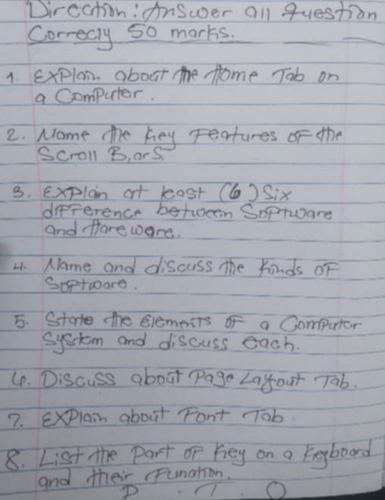 Direction: Answer all question
Correcly 50 marks.
1. Explain about the Home Tab on
a Computer.
2. Name the key Features of the
Scroll Bars
3. Explain at least (6) Six
difference between Software
and Hareware.
4. Name and discuss the kinds of
Software.
5. State the elements of a Computer
System and discuss each.
6. Discuss about Page Layout Tab.
7. Explain about Font Tab
8. List the Part of Key on a keyboard
and their Function.
P. T. O